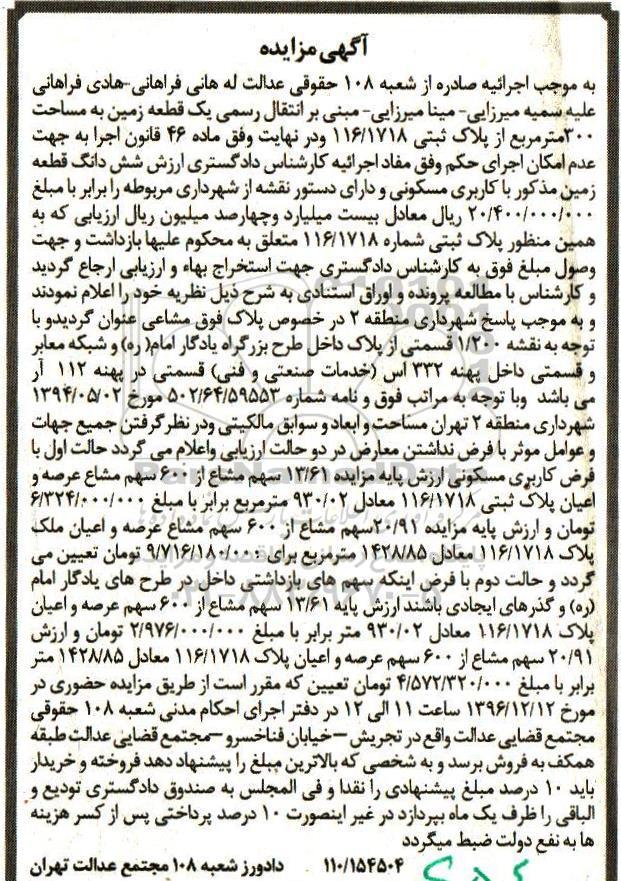 آگهی مزایده
به موجب اجرائیه صادره از شعبه ۱۰۸ حقوقی عدالت له هانی فراهانی-هادی فراهانی
علیه سمیه میرزایی- مینا میرزایی- مبنی بر انتقال رسمی یک قطعه زمین به مساحت
۳۰۰مترمربع از پلاک ثبتی ۱۱۶/۱۷۱۸ ودر نهایت وفق ماده ۴۶ قانون اجرا به جهت
عدم امکان اجرای حکم وفق مفاد اجرائیه کارشناس دادگستری ارزش شش دانگ قطعه
زمین مذکور با کاربری مسکونی و دارای دستور نقشه از شهرداری مربوطه را برابر با مبلغ
۲۰/۴۰۰/۰۰۰/۰۰۰ ریال معادل بیست میلیارد وچهارصد میلیون ریال ارزیابی که به
همین منظور پلاک ثبتی شماره ۱۱۶/۱۷۱۸ متعلق به محکوم علیها بازداشت و جهت
وصول مبلغ فوق به کارشناس دادگستری جهت استخراج بهاء و ارزیابی ارجاع گردید
و کارشناس با مطالعه پرونده و اوراق استنادی به شرح ذیل نظریه خود را اعلام نمودند
و به موجب پاسخ شهرداری منطقه ۲ در خصوص پلاک فوق مشاعی عنوان گردیدو با
توجه به نقشه ۱/۲۰۰ قسمتی از پلاک داخل طرح بزرگراه یادگار امام( ره) و شبکه معابر
و قسمتی داخل پهنه ۳۳۲ اس (خدمات صنعتی و فنی) قسمتی در پهنه ۱۱۲ آر
می باشد وبا توجه به مراتب فوق و نامه شماره ۵۰۲/۶۴/۵۹۵۵۳ مورخ ۱۳۹۴/۰۵/۰۲
شهرداری منطقه ۲ تهران مساحت و ابعاد و سوابق مالکیتی ودر نظر گرفتن جمیع جهات
و عوامل موثر با فرض نداشتن معارض در دو حالت ارزیابی واعلام می گردد حالت اول با
فرض کاربری مسکونی ارزش پایه مزایده ۱۳/۶۱ سهم مشاع از ۶۰۰ سهم مشاع عرصه و
اعیان پلاک ثبتی ۱۱۶/۱۷۱۸ معادل ۹۳۰/۰۲ مترمربع برابر با مبلغ ۶/۳۲۴/۰۰۰/۰۰۰
تومان و ارزش پایه مزایده ۲۰/۹۱سهم مشاع از ۶۰۰ سهم مشاع عرصه و اعیان ملک
پلاک ۱۱۶/۱۷۱۸ معادل ۱۴۲۸/۸۵ مترمربع برای ۹/۷۱۶/۱۸۰/۰۰۰ تومان تعیین می
گردد و حالت دوم با فرض اینکه سهم های بازداشتی داخل در طرح های یادگار امام
(ره) و گذرهای ایجادی باشند ارزش پایه ۱۳/۶۱ سهم مشاع از ۶۰۰ سهم عرصه و اعیان
پلاک ۱۱۶/۱۷۱۸ معادل ۹۳۰/۰۲ متر برابر با مبلغ ۲/۹۷۶/۰۰۰/۰۰۰ تومان و ارزش
۲۰/۹۱ سهم مشاع از ۶۰۰ سهم عرصه و اعیان پلاک ۱۱۶/۱۷۱۸ معادل ۱۴۲۸/۸۵ متر
برابر با مبلغ ۴/۵۷۲/۳۲۰/۰۰۰ تومان تعیین که مقرر است از طریق مزایده حضوری در
مورخ ۱۳۹۶/۱۲/۱۲ ساعت ۱۱ الی ۱۲ در دفتر اجرای احکام مدنی شعبه ۱۰۸ حقوقی
مجتمع قضایی عدالت واقع در تجریش –خیابان فناخسرو –مجتمع قضایی عدالت طبقه
همکف به فروش برسد و به شخصی که بالاترین مبلغ را پیشنهاد دهد فروخته و خریدار
باید ۱۰ درصد مبلغ پیشنهادی را نقدا و فی المجلس به صندوق دادگستری تودیع و
الباقی را ظرف یک ماه بپردازد در غیر اینصورت ۱۰ درصد پرداختی پس از کسر هزینه
ها به نفع دولت ضبط میگردد
۱۱۰/۱۵۴۵۰۴ دادورز شعبه ۱۰۸ مجتمع عدالت تهران